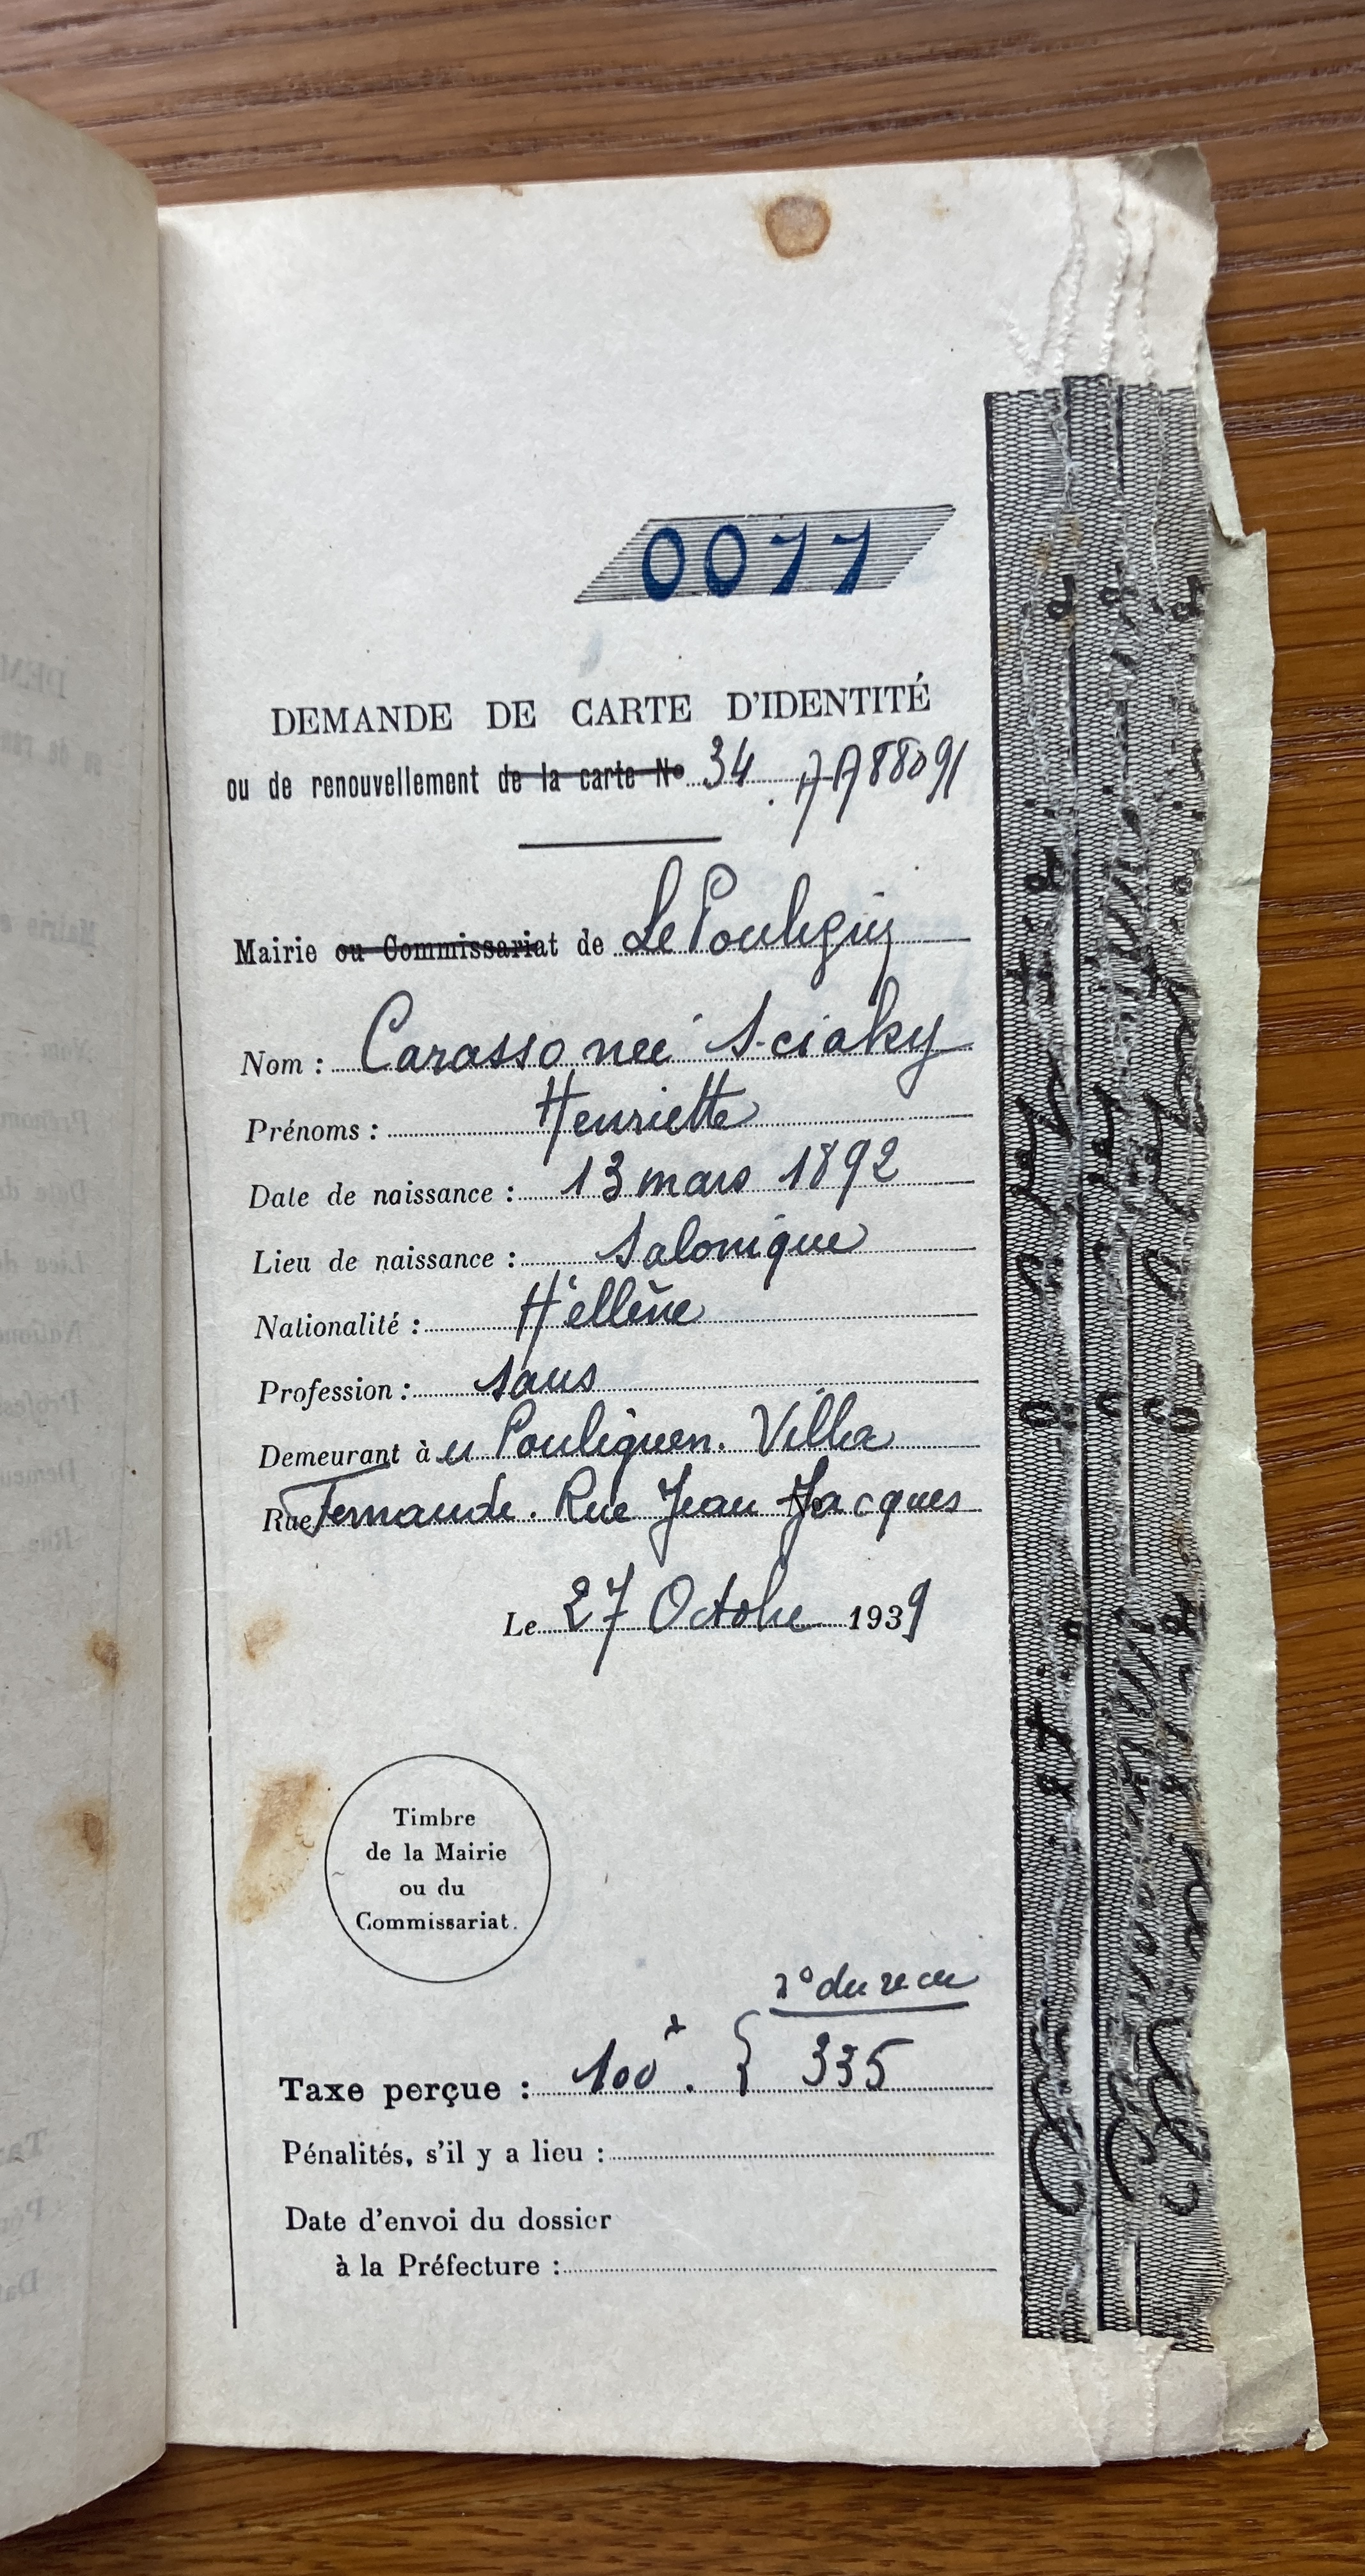 0077
DEMANDE DE CARTE D'IDENTITÉ
ou de renouvellement de la carte No 34. AA 88091
Mairie ou Commissariat de Le Pouliguen
Nom : Carasso née Sciaky
Prénoms : Henriette
Date de naissance : 13 mars 1892
Lieu de naissance : Salonique
Nationalité : Héllène
Profession : sans
Demeurant à u Pouliguen. Villa
Rue Fernande. Rue Jean Jacques
Le 27 Octobre 1939
Timbre
de la Mairie
ou du
Commissariat.
no du recu
Taxe perçue : 100 f. { 335
Pénalités, s'il y a lieu :
Date d'envoi du dossier
à la Préfecture :